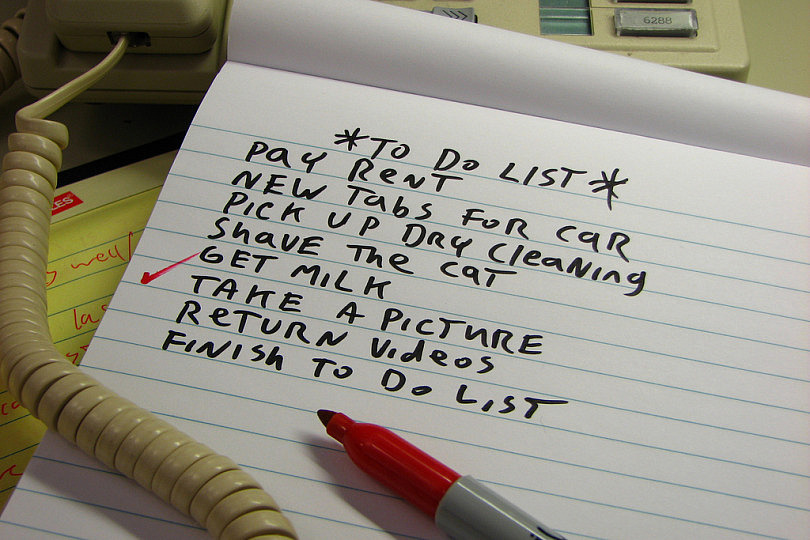 6288
*TO DO LIST*
Pay RENT
NEW Tabs FOR CaR
PICK UP DRy Cleaning
Shave The caT
GET MILK
TAKE A PICTURE
ReTURN Videos
FINISh To Do LIST
well
las